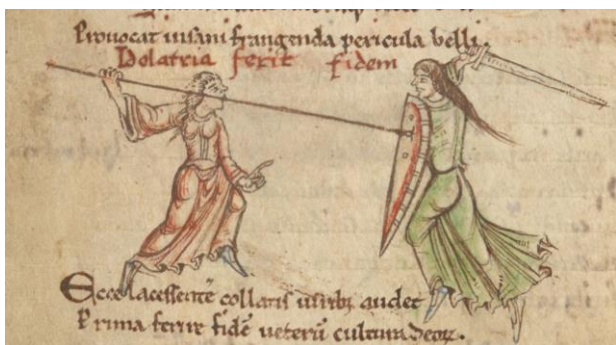 Provocat insani frangenda pericula belli.
Dolatria ferit fidem
Ecce lacessentē collatis uirib; audet
Prima ferire fidē ueterū cultura deoꝝ.